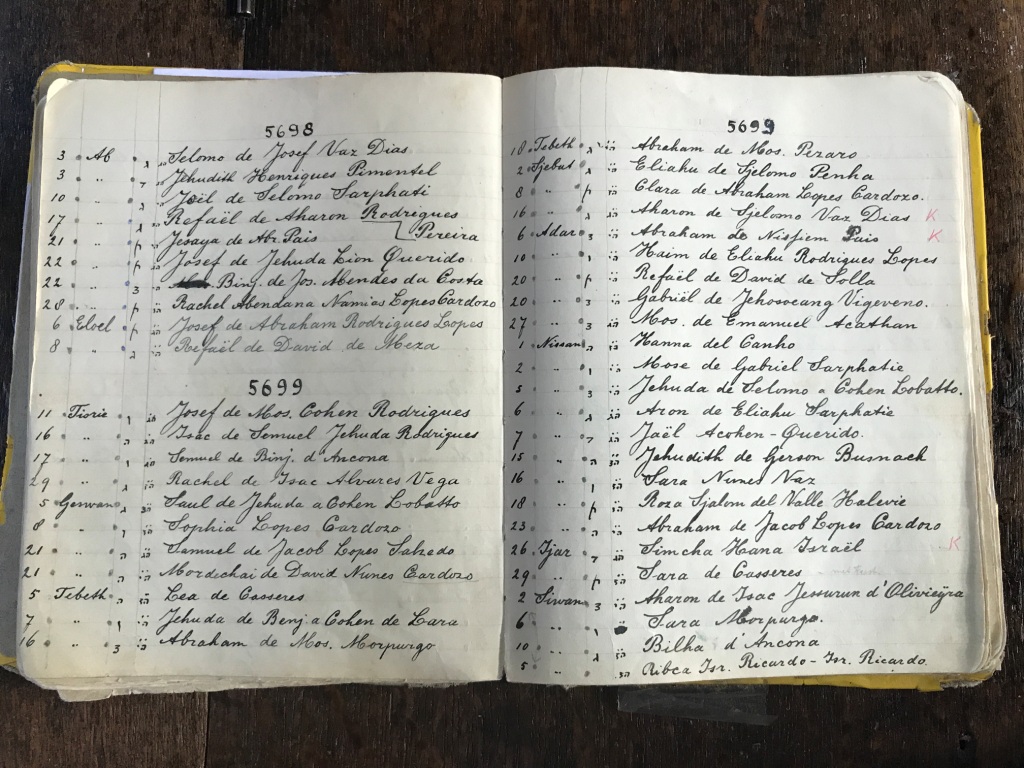 5698
3 „ Ab ג „ Selomo de Josef Vaz Dias
3 „ „ ד „ Jehudith Henriques Pimentel
10 „ „ Joël de Selomo Sarphati
17 „ „ ג Refaël de Aharon Rodrigues
21 „ „ Jesaya de Abr. Pais [ Pereira
22 „ „ Josef de Jehuda Lion Querido
22 „ „ Binj. de Jos. Mendes da Costa
28 „ „ Rachel Abendana Namias Lopes Cardozo
6 „ Eloel Josef de Abraham Rodrigues Lopes
8 „ „ ג Refaël de David de Meza
5699
11 „ Tisrie ו Josef de Mos. Cohen Rodrigues
16 „ „ Isac de Semuel Jehuda Rodrigues
17 „ „ ו Semuel de Binj. d'Ancona
29 „ „ ג Rachel de Isac Alvares Vega
5 „ Geswan Saul de Jehuda a Cohen Lobatto
8 „ „ ה Sophia Lopes Cardozo
21 „ „ ה Samuel de Jacob Lopes Salzedo
21 „ „ ה Mordechai de David Nunes Cardozo
5 „ Tebeth ה Lea de Casseres
7 „ „ ו Jehuda de Benj. a Cohen de Lara
16 „ „ Abraham de Mos. Morpurgo
5699
18 „ Tebeth ג Abraham de Mos. Pezaro
2 „ Sjebat Eliahu de Sjelomo Penha
8 „ „ Clara de Abraham Lopes Cardozo.
16 „ „ ג Aharon de Sjelomo Vaz Dias K
6 „ Adar Abraham de Nissiem Pais K
10 „ „ ו Haim de Eliahu Rodrigues Lopes
20 „ „ Refaël de David de Solla
20 „ „ Gabriël de Jehosoeang Vigeveno.
27 „ „ Mos. de Emanuel Acathan
1 „ Nissan ה Hanna del Canho
2 „ „ ו Mose de Gabriel Sarphatie
5 „ „ Jehuda de Selomo a Cohen Lobatto.
6 „ „ ג Aron de Eliahu Sarphatie
7 „ „ ד Jaël Acohen-Querido.
15 „ „ ה Jehudith de Gerson Busnach
16 „ „ ו Sara Nunes Vaz
18 „ „ Roza Sjalom del Valle Halevie
23 „ „ ה Abraham de Jacob Lopes Cardozo
26 „ Ijar ד Simcha Hana Israël K
29 „ „ Sara de Casseres
2 „ Siwan Aharon de Isac Jessurun d'Oliviëyra
6 „ „ ו Sara Morpurgo.
10 „ „ ג Bilha d'Ancona
5 „ „ Ribca Isr. Ricardo-Isr. Ricardo.